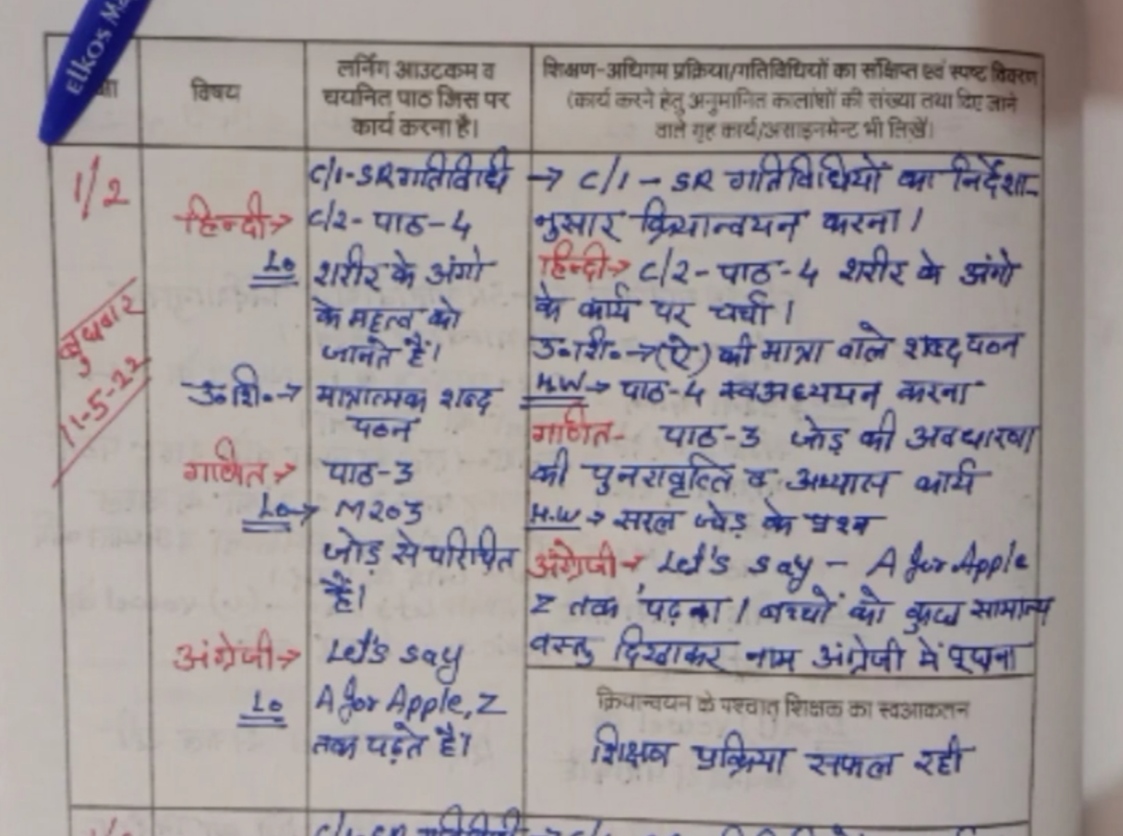 Elkos
विषय
लर्निंग आउटकम व
चयनित पाठ जिस पर
कार्य करना है।
शिक्षण-अधिगम प्रक्रिया/गतिविधियों का संक्षिप्त एवं स्पष्ट विवरण
(कार्य करने हेतु अनुमानित कालांशों की संख्या तथा दिए जाने
वाले गृह कार्य/असाइनमेंट भी लिखें)
1/2
बुधवार
11-5-22
हिन्दी→
C/1-SR गतिविधि
C/2- पाठ-4
Lo शरीर के अंगो
के महत्व को
जानते हैं।
उ०शि०→ मात्रात्मक शब्द
पठन
गणित→ पाठ-3
Lo→ M203
जोड़ से परिचित
हैं।
अंग्रेजी→ Let's say
Lo A for Apple, Z
तक पढ़ते है।
→ C/1 - SR गतिविधियों का निर्देशा-
नुसार क्रियान्वयन करना।
हिन्दी→ C/2- पाठ-4 शरीर के अंगो
के कार्य पर चर्चा।
उ०शि०→(ऐ) की मात्रा वाले शब्द पठन
H.W→ पाठ-4 स्वअध्ययन करना
गणित- पाठ-3 जोड़ की अवधारणा
की पुनरावृत्ति व अभ्यास कार्य
H.W→ सरल जोड़ के प्रश्न
अंग्रेजी→ Let's say - A for Apple
Z तक पढ़ना। बच्चों को कुछ सामान्य
वस्तु दिखाकर नाम अंग्रेजी में पूछना
क्रियान्वयन के पश्चात शिक्षक का स्वआकलन
शिक्षण प्रक्रिया सफल रही